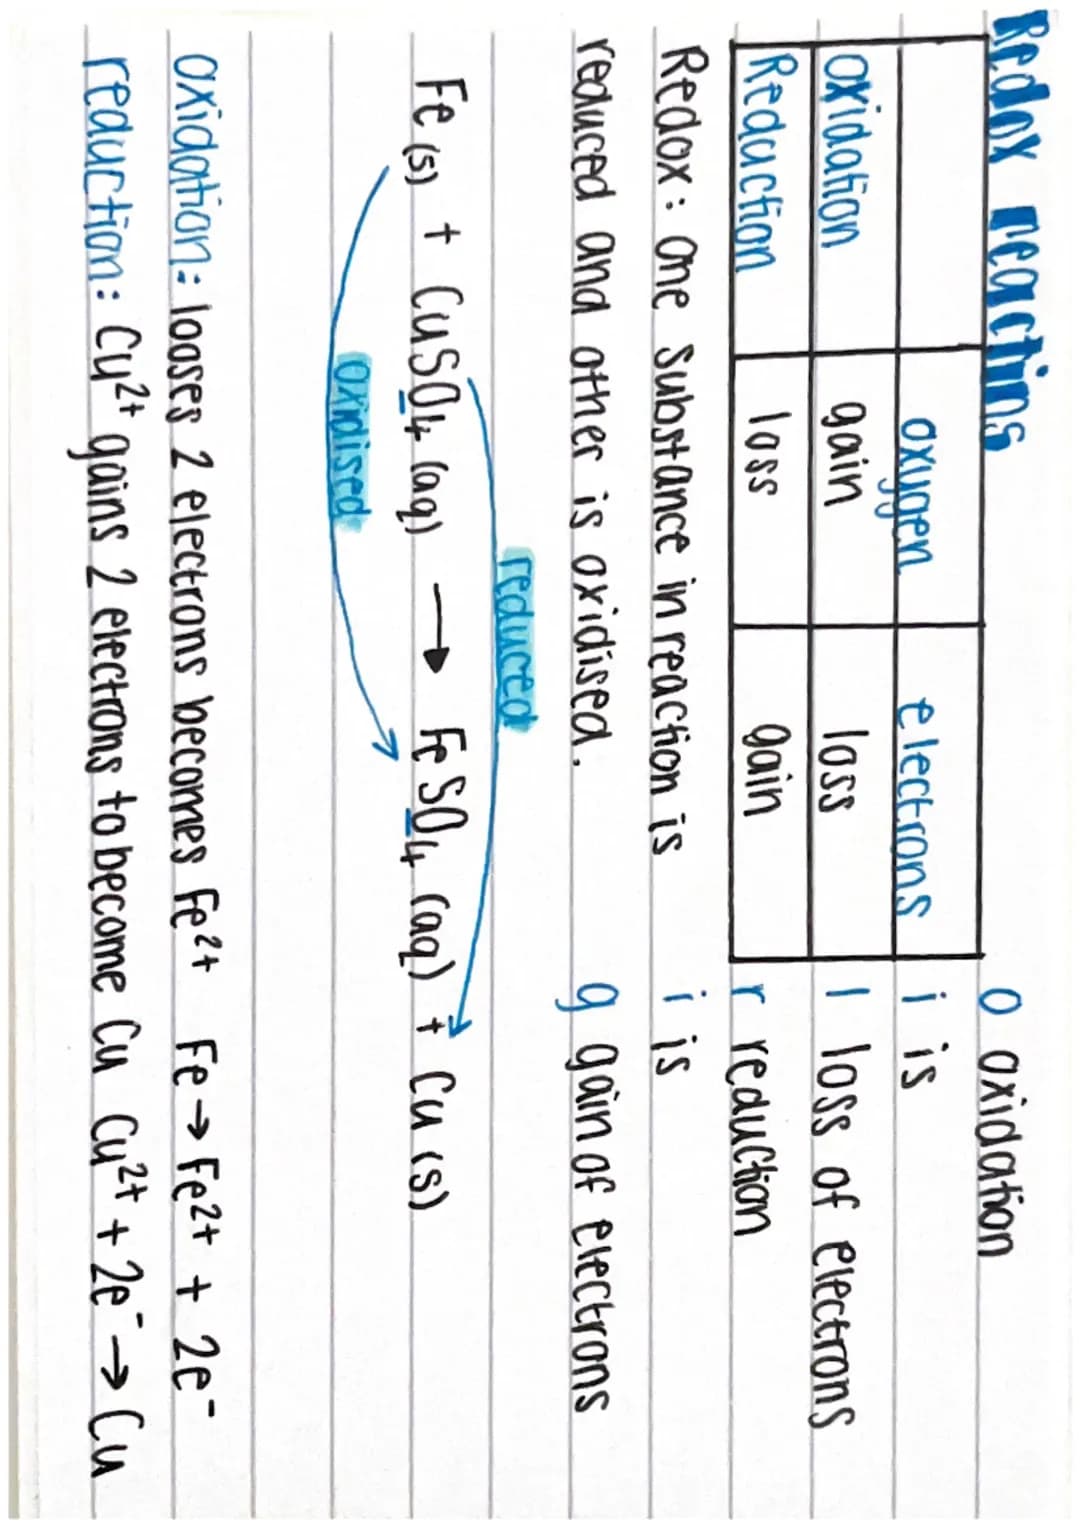 Redox reactions
oxygen electrons
oxidation gain loss
Reduction loss gain
o oxidation
i is
l loss of electrons
r reduction
i is
g gain of electrons
Redox: one substance in reaction is
reduced and other is oxidised.
reduced
Fe (s) + CuSO4 (aq) → FeSO4 (aq) + Cu (s)
oxidised
oxidation: looses 2 electrons becomes Fe²⁺ Fe → Fe²⁺ + 2e⁻
reduction: Cu²⁺ gains 2 electrons to become Cu Cu²⁺ + 2e⁻ → Cu